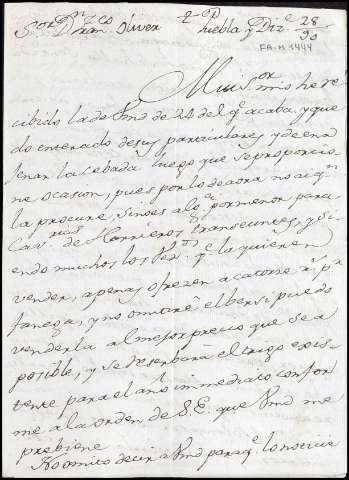 S.or D.n Fran.co Oliver Puebla y Diz.e 28/90
FA-M.1444
Mui S.or mio he re
cibido la de Vmd de 24 del q.e acaba, y que
do enterado de sus particulares y de ena
genar la cebada luego que se proporcio
ne ocasion, pues por lo de aora no ai q.n
la procure, sino es alg.o por menor para
Cav.rias de Harrieros transeuntes, y si
endo muchos, los q.e la quieren
vender, apenas ofrezen a catorze r.s p.r
fanega, y no omitiré el ber si puedo
venderla al mejor precio que sea
posible, y se reserbará el trigo exis
tente para el año inmediato confor
me a la orden de S.E. que Vmd me
prebiene
No omito decir a Vmd para q.e lo noticie